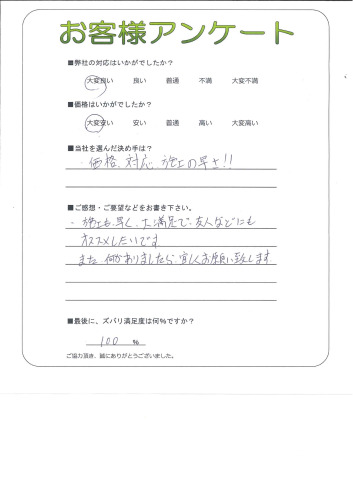 お客様アンケート
■弊社の対応はいかがでしたか?
大変良い 良い 普通 不満 大変不満
■価格はいかがでしたか?
大変安い 安い 普通 高い 大変高い
■当社を選んだ決め手は?
・価格、対応、施工の早さ!!
■ご感想・ご要望などをお書き下さい。
・施工も早く、大満足で、友人などにも
オススメしたいです
また、何かありましたら、宜しくお願い致します
■最後に、ズバリ満足度は何%ですか?
100 %
ご協力頂き、誠にありがとうございました。